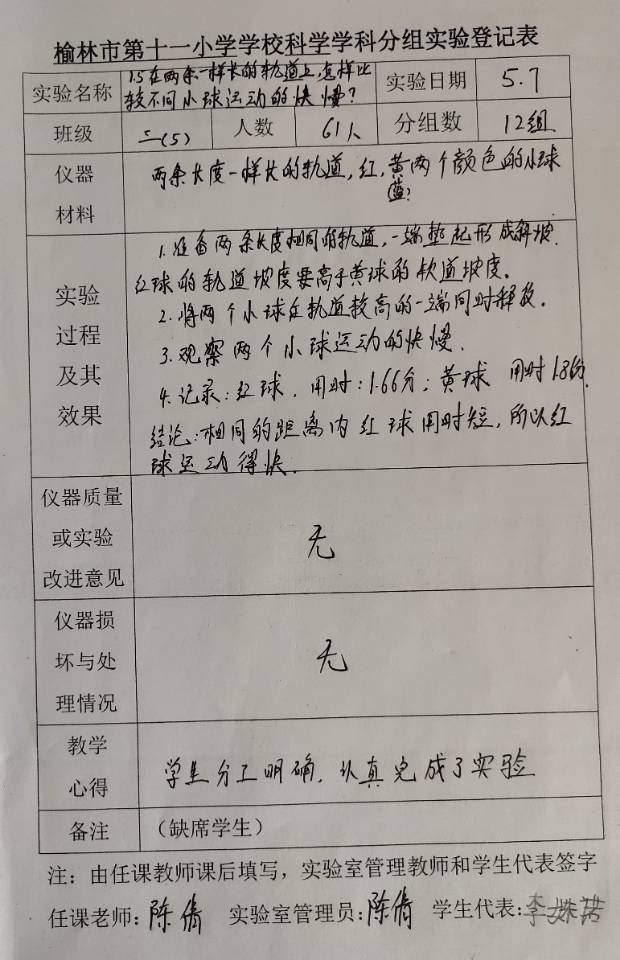 榆林市第十一小学学校科学学科分组实验登记表
实验名称 1.5在两条一样长的轨道上,怎样比 实验日期 5.7
较不同小球运动的快慢?
班级 三(5) 人数 61人 分组数 12组
仪器 两条长度一样长的轨道,红,黄两个颜色的小球
材料 蓝
1.准备两条长度相同的轨道,一端垫起形成斜坡.
红球的轨道坡度要高于黄球的轨道坡度。
实验 2.将两个小球在轨道较高的一端同时释放.
过程 3.观察两个小球运动的快慢.
及其 4.记录:红球.用时:1.66分;黄球 用时1.86分.
效果 结论:相同的距离内红球用时短,所以红
球运动得快.
仪器质量
或实验 无
改进意见
仪器损
坏与处 无
理情况
教学
心得 学生分工明确.认真完成了实验
备注 (缺席学生)
注:由任课教师课后填写,实验室管理教师和学生代表签字
任课老师:陈倩 实验室管理员:陈倩 学生代表:李姝诺